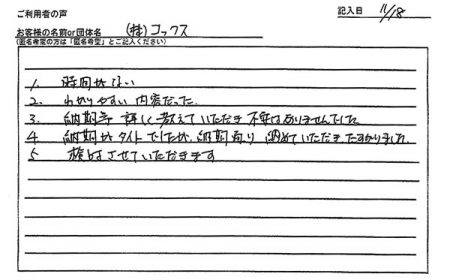 ご利用者の声
記入日 11/18
お客様の名前or団体名 (株)コックス
(匿名希望の方は「匿名希望」とご記入ください)
1. 時間がない
2. わかりやすい内容だった.
3. 納期等 詳しく教えていただき 不安はありませんでした
4 納期がタイトでしたが、納期通り 納めていただき、たすかりました。
5 検討させていただきます